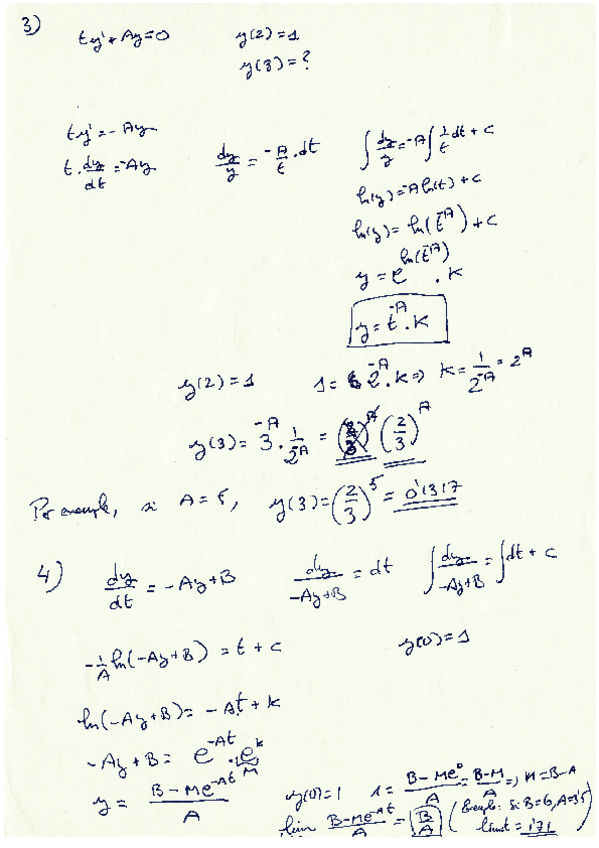 3)
ty'+Ay=0   y(2)=1
y(3)=?
ty'=-Ay
t·dy/dt=-Ay   dy/y = -A/t·dt   ∫dy/y=-A∫1/t dt+c
ln(y)=-A ln(t)+c
ln(y)=ln(t^-A)+c
y=e^ln(t^-A)·K
y=t^-A·K
y(2)=1   1=2^-A·K⇒ K=1/2^-A=2^A
y(3)=3^-A·1/2^-A = (2/3)^A
Por exemple, si A=5, y(3)=(2/3)^5=0'1317
4) dy/dt=-Ay+B   dy/-Ay+B=dt   ∫dy/-Ay+B=∫dt+c
-1/A ln(-Ay+B)=t+c   y(0)=1
ln(-Ay+B)=-At+K
-Ay+B=e^-At·e^K
M
y=B-Me^-At/A   y(0)=1   1=B-Me^0/A=B-M/A=, M=B-A
lim B-Me^-At/A=B/A (Exemple: Si B=6, A=3'5
límit=1'71